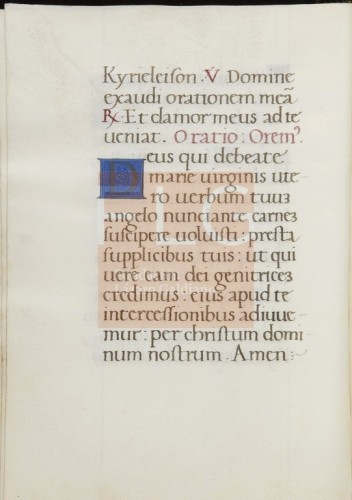 Kyrieleison. V̷ Domine
exaudi orationem meā
R̷. Et clamor meus ad te
ueniat. Oratio: Orem?
Deus qui de beate
marie uirginis ute
ro uerbum tuuꝫ
angelo nunciante carneꝫ
suscipere uoluisti: presta
supplicibus tuis: ut qui
uere eam dei genitriceꝫ
credimus: eius apud te
intercessionibus adiuue
mur: per christum domi
num nostrum. Amen: